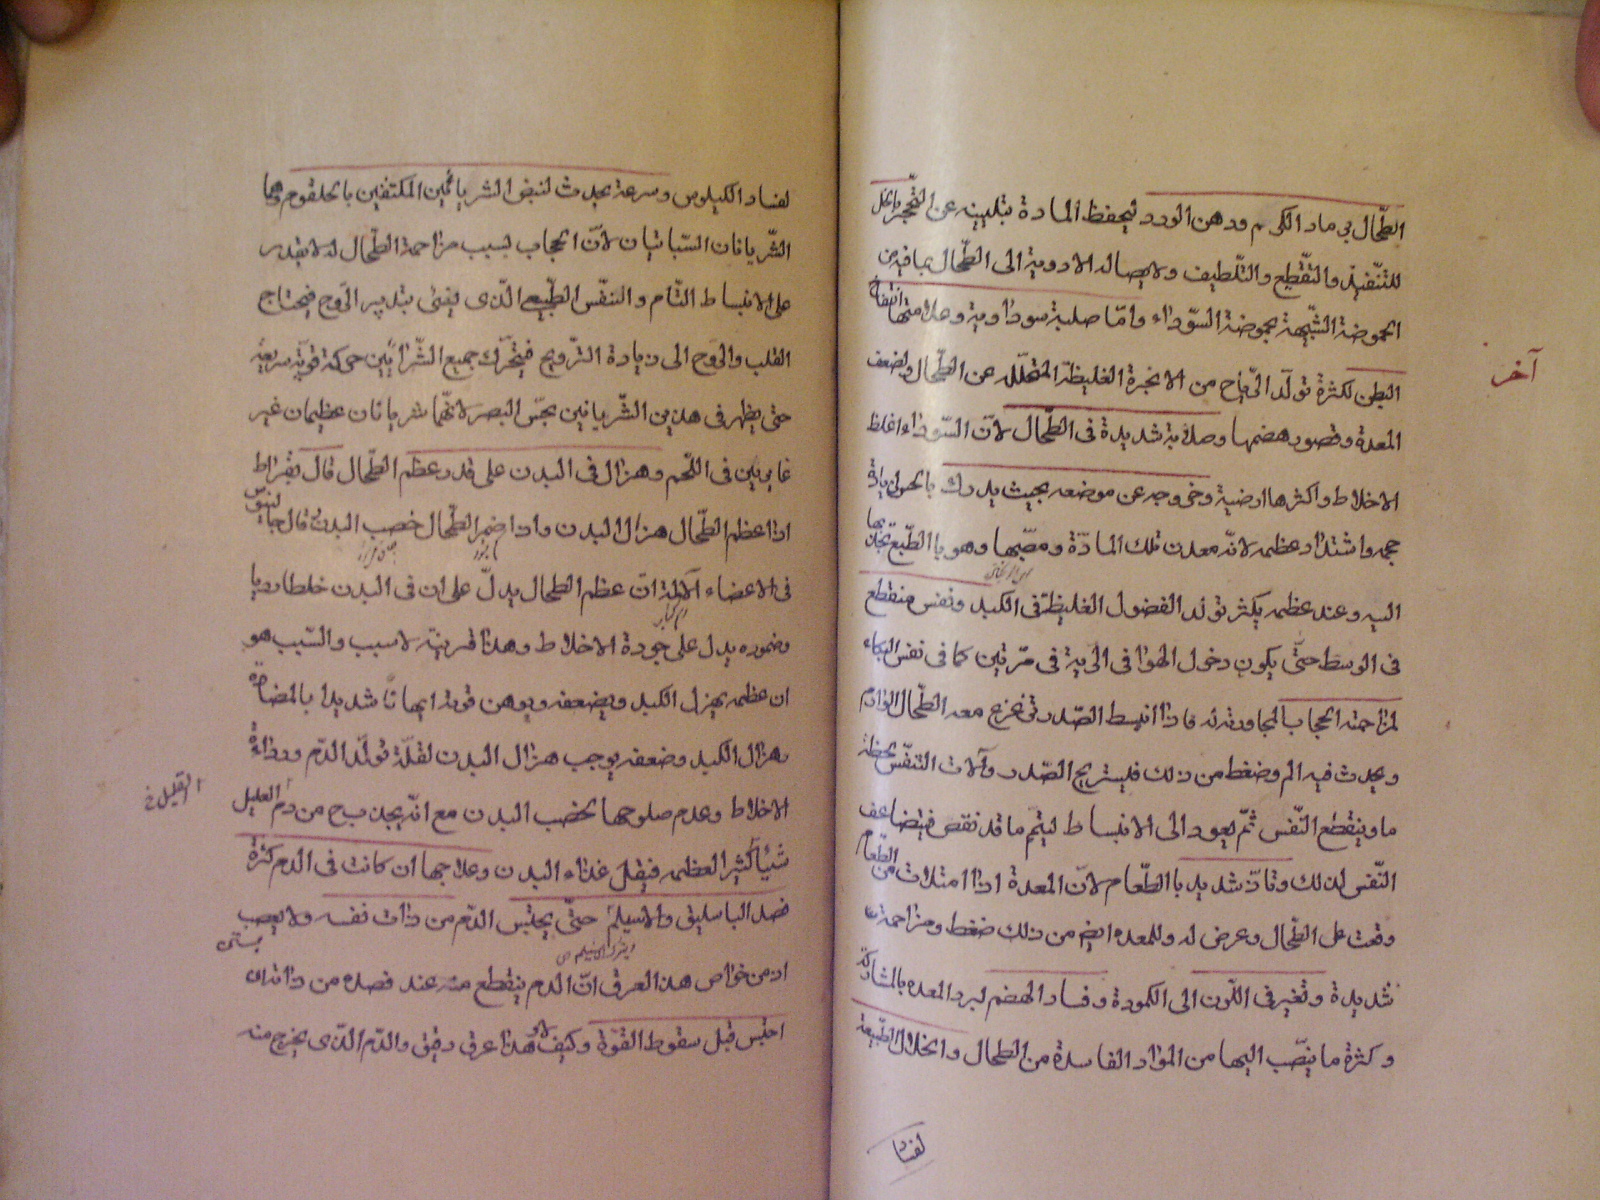 الطّحال بي ماد الكرم ودهن الورد ليحفظ المادة بتليينه عن التّحجّر بالخل
للتّنفيذ والتّقطيع والتّلطيف ولايصاله الادوية الى الطّحال بما فيه من
الحموضة الشّبيهة بحموضة السّوداء وامّا صلبة سوداوية وعلامتها انتفاخ
آخر
البطن لكثرة تولّد الرّياح من الابخرة الغليظة المتحلّله عن الطّحال ولضعف
المعدة وقصور هضمها وصلابة شديدة فى الطّحال لانّ السّوداء اغلظ
الاخلاط واكثرها ارضية وخروجه عن موضعه بحيث يدرك بالحس لزيادة
حجمه واشتداد عظمه لانّه معدن تلك المادّة ومصّبها وهو بالطّبع يجذبها
اليه وعند عظمه يكثر تولد الفضول الغليظة فى الكبد ونفس منقطع
فى الوسط حتّى يكون دخول الهوا فى الرية فى مرّتين كما فى نفس البكاء
لمزاحمته الحجاب المجاورته له فاذا انبسط الصّدر تزعزع معه الطّحال الوارم
ويحدث فيه الم وضغط من ذلك فيستريح الصّدر وآلات التنفّس لحظة
ما وينقطع النّفس ثمّ يعود الى الانبساط ليتم ما قد نقص فيتضاعف
النّفس لذلك وتاذّ شديد بالطّعام لانّ المعدة اذا امتلات من الطعام
وقعت على الطّحال وعرض له وللمعده ايضا من ذلك ضغط ومزاحمة
شديدة وتغير فى اللّون الى الكمودة وفساد الهضم لبرد المعده بالمشاركة
وكثرة ما ينصّب اليها من الموّاد الفاسدة من الطحال وانحلال الطّبيعة
لفساد
لفساد الكيلوس وسرعة يحدث لنبض الشريانين المكتنفين بالحلقوم وهما
الشّريانان السّباتيان لانّ الحجاب بسبب مزاحمة الطّحال له لا يقدر
على الانبساط التّام والتنفّس الطّبيعى الّذى يفى بتدبير الرّوح فيحتاج
القلب والرّوح الى زيادة التّرويح فيتحرّك جميع الشّرائين حركة قويّة سريعة
حتى يظهر فى هذين الشّريانين بحسّ البصر لانّهما شريانان عظيمان غير
غايرين فى اللّحم وهزال فى البدن على قدر عظم الطّحال قال بقراط
اذا عظم الطّحال هزال البدن واذا ضمر الطّحال خصب البدن قال جالينوس
فى الاعضاء الآلمة انّ عظم الطحال يدلّ على ان فى البدن خلطا رديا
وضموره يدل على جودة الاخلاط وهذا قرينة لا سبب والسّبب هو
ان عظمه يهزل الكبد ويضعفه ويوهن قوته ايهانًا شديدا بالمضادة
وهزال الكبد وضعفه يوجب هزال البدن لقلّة تولّد الدّم ورداءة
الاخلاط وعدم صلوحها لخصب البدن مع انّه يجذب ح من دم العليل
القليل خ
شيًا كثيرا لعظمه فيقل غذاء البدن وعلاجها ان كانت فى الدم كثرة
فصد الباسليق والاسيلم حتّى يحتبس الدّم من ذات نفسه ولا يعصب
اذ من خواص هذا العرق انّ الدم ينقطع منه عند فصده من ذاته ان
احتبس قبل سقوط القوّة وكيف لا وهذا عرق دقيق والدّم الّذى يخرج منه